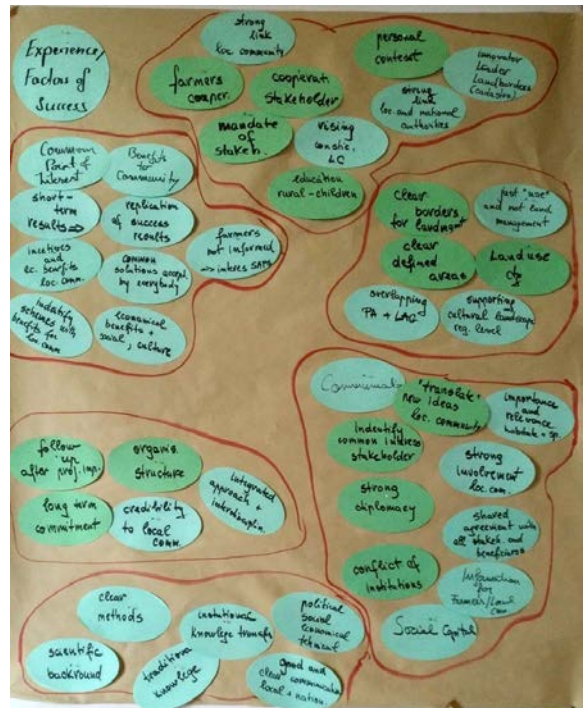 Experience/
Factors of
Success
strong
link
loc. community
personal
contact
innovator
Leader
Landborders
farmers
cooper.
cooperati.
stakeholder
strong
link
loc. and national
authorities
mandate
of
stakeh.
rising
LC
education
rural-children
Common
Point of
Interest
Benefits
to
Community
short-
term
results ⇒
replication
of success
results
farmers
not informed
⇒ interes SAPS
and
ec. benefits
loc. comm.
common
solutions accept.
by everybody
Indetify
schemes with
benefits for
loc. comm
Economical
benefits +
social, culture
clear
borders
for landmgmt
just "use"
and not land
management
clear
defined
areas
Land use
overlapping
PA + LAG
supporting
cultural landscape
reg. level
"translate"
new ideas
loc. community
importance
and
relevance
habitats + sp.
Indentify
common interess
stakeholder
strong
involvement
loc. com.
strong
diplomacy
shared
agreement with
all stakeh. and
beneficiaros
conflict of
institutions
Information
for
Farmers/Local
Com
Social Capital
follow
up
after proj. imp.
organis.
structure
integrated
approach +
interdisciplin.
long term
commitment
credibility
to local
comm.
clear
methods
knowlege transfer
political
social
economical
tehnical
scientific
backround
traditional
knowlege
good and
clear communication
local + nation.